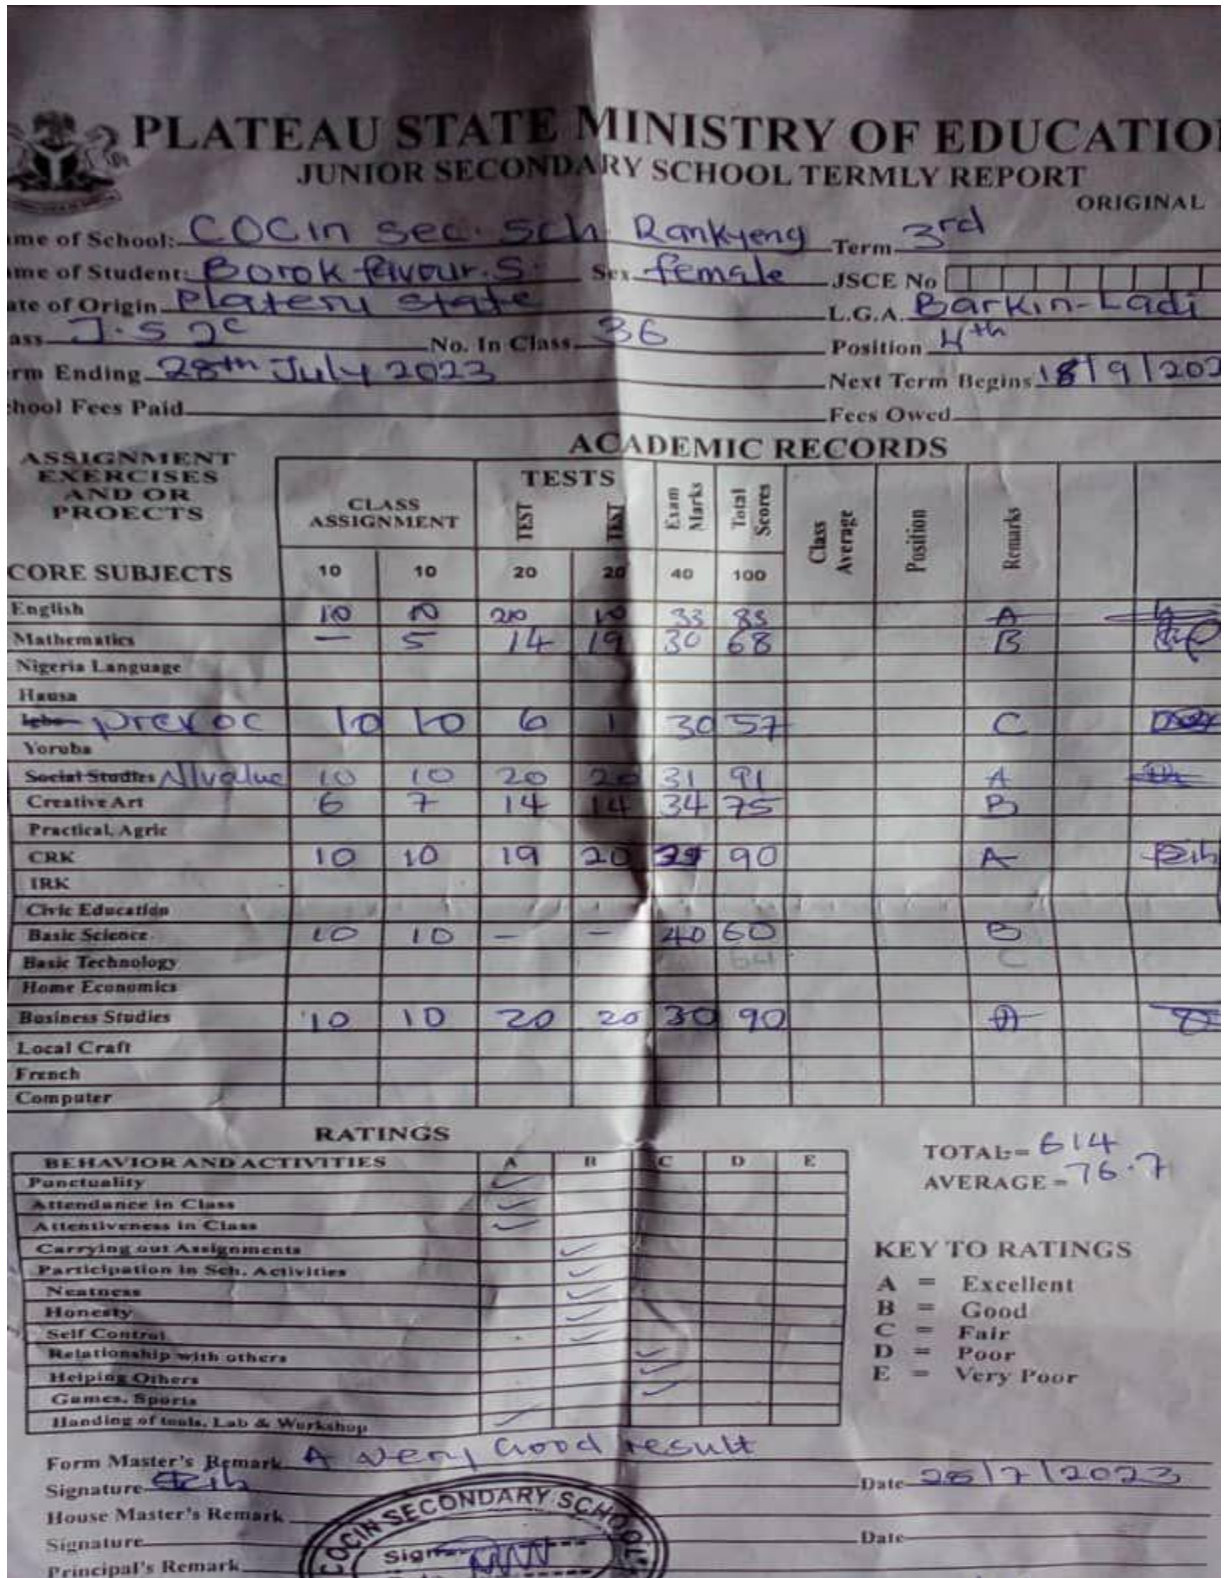 PLATEAU STATE MINISTRY OF EDUCATIO
JUNIOR SECONDARY SCHOOL TERMLY REPORT
ORIGINAL
ame of School: COCIN Sec. Sch. Rankyeng Term 3rd
ame of Student: Borok favour. S. Sex female JSCE No
ate of Origin Plateru state L.G.A. Barkin-Ladi
ass J.S 2c No. In Class 36 Position 4th
rm Ending 28th July 2023 Next Term Begins 18/9/202
hool Fees Paid Fees Owed
ACADEMIC RECORDS
ASSIGNMENT EXERCISES AND OR PROECTS CLASS ASSIGNMENT TESTS TEST TEST Exam Marks Total Scores Class Average Position Remarks
CORE SUBJECTS 10 10 20 20 40 100
English 10 10 20 10 33 83 A
Mathematics — 5 14 19 30 68 B
Nigeria Language
Hausa
Igbo prevoc 10 10 6 1 30 57 C
Yoruba
Social Studies N/value 10 10 20 20 31 91 A
Creative Art 6 7 14 14 34 75 B
Practical, Agric
CRK 10 10 19 20 90 A
IRK
Civic Education
Basic Science 10 10 — — 40 60 B
Basic Technology 64 C
Home Economics
Business Studies 10 10 20 20 30 90 A
Local Craft
French
Computer
RATINGS
BEHAVIOR AND ACTIVITIES A B C D E
Punctuality
Attendance in Class
Attentiveness in Class
Carrying out Assignments
Participation in Sch. Activities
Neatness
Honesty
Self Control
Relationship with others
Helping Others
Games, Sports
Handing of tools, Lab & Workshop
TOTAL:= 614
AVERAGE = 76.7
KEY TO RATINGS
A = Excellent
B = Good
C = Fair
D = Poor
E = Very Poor
Form Master's Remark A very Good result
Signature Date 28/7/2023
House Master's Remark
Signature Date
Principal's Remark
COCIN SECONDARY SCHOOL
Sign